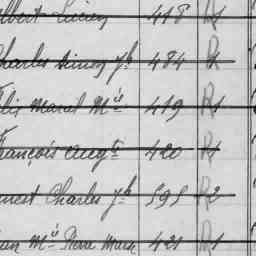 lbert Lucien 418 R1
Charles Simon Jh 484 R1
Félix Marcel Mie 419 R1
François Augte 420 R1
rnest Charles Jh 595 R2
ean Mie Pierre Marie 421 R1